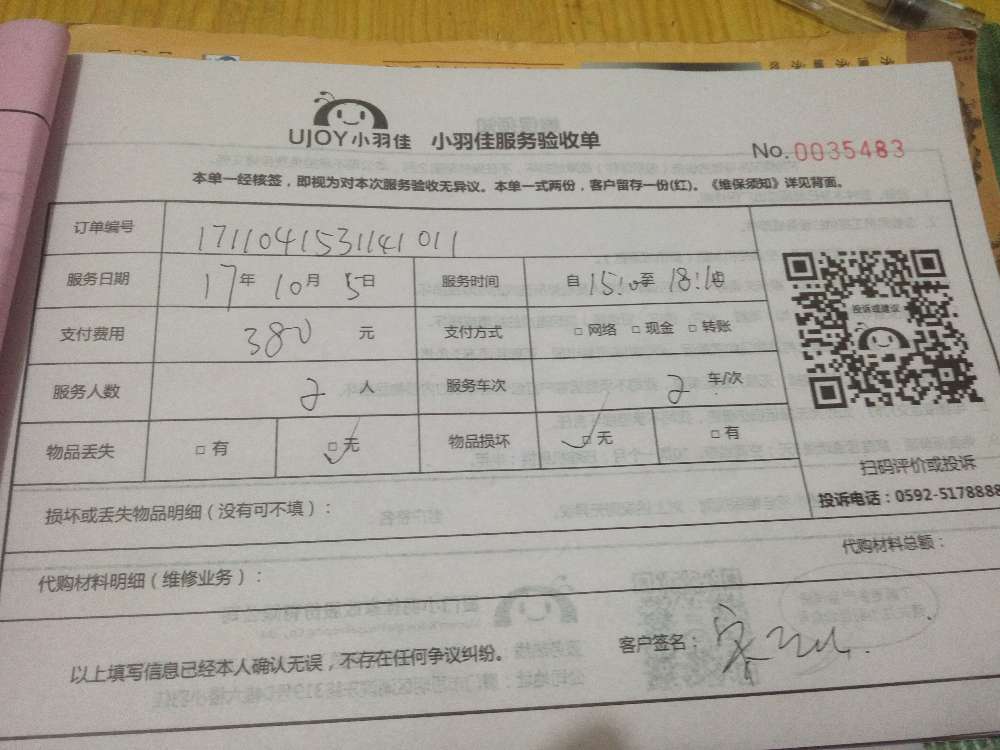 UJOY小羽佳 小羽佳服务验收单
No.0035483
本单一经核签，即视为对本次服务验收无异议。本单一式两份，客户留存一份(红)。《维保须知》详见背面。
订单编号 1711041531141011
服务日期 17年 10月 5日 服务时间 自15:10至18:10
支付费用 380 元 支付方式 □网络 □现金 □转账
服务人数 2 人 服务车次 2 车/次
物品丢失 □有 □无 物品损坏 □无 □有
投诉或建议
扫码评价或投诉
投诉电话：0592-5178888
损坏或丢失物品明细（没有可不填）：
代购材料明细（维修业务）：
代购材料总额：
以上填写信息已经本人确认无误，不存在任何争议纠纷。
客户签名：